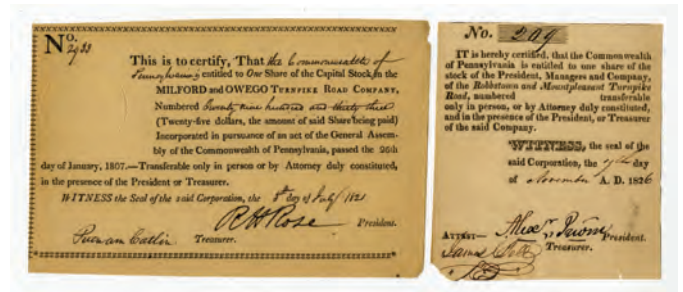 No.
2933
This is to certify, That the Commonwealth of
Pennsylvania is entitled to One Share of the Capital Stock in the
MILFORD and OWEGO TURNPIKE ROAD COMPANY,
Numbered twenty nine hundred and thirty three
(Twenty-five dollars, the amount of said Share being paid)
Incorporated in pursuance of an act of the General Assem-
bly of the Commonwealth of Pennsylvania, passed the 26th
day of January, 1807.—Transferable only in person or by Attorney duly constituted,
in the presence of the President or Treasurer.
WITNESS the Seal of the said Corporation, the 5th day of July 1821
R H Rose President.
Putnam Catlin Treasurer.
No. 209
IT is hereby certified, that the Commonwealth
of Pennsylvania is entitled to one share of the
stock of the President, Managers and Company,
of the Robbstown and Mountpleasant Turnpike
Road, numbered transferable
only in person, or by Attorney duly constituted,
and in the presence of the President, or Treasurer
of the said Company.
WITNESS, the seal of the
said Corporation, the 9th day
of November A. D. 1826
ATTEST— Alexr President.
James Treasurer.